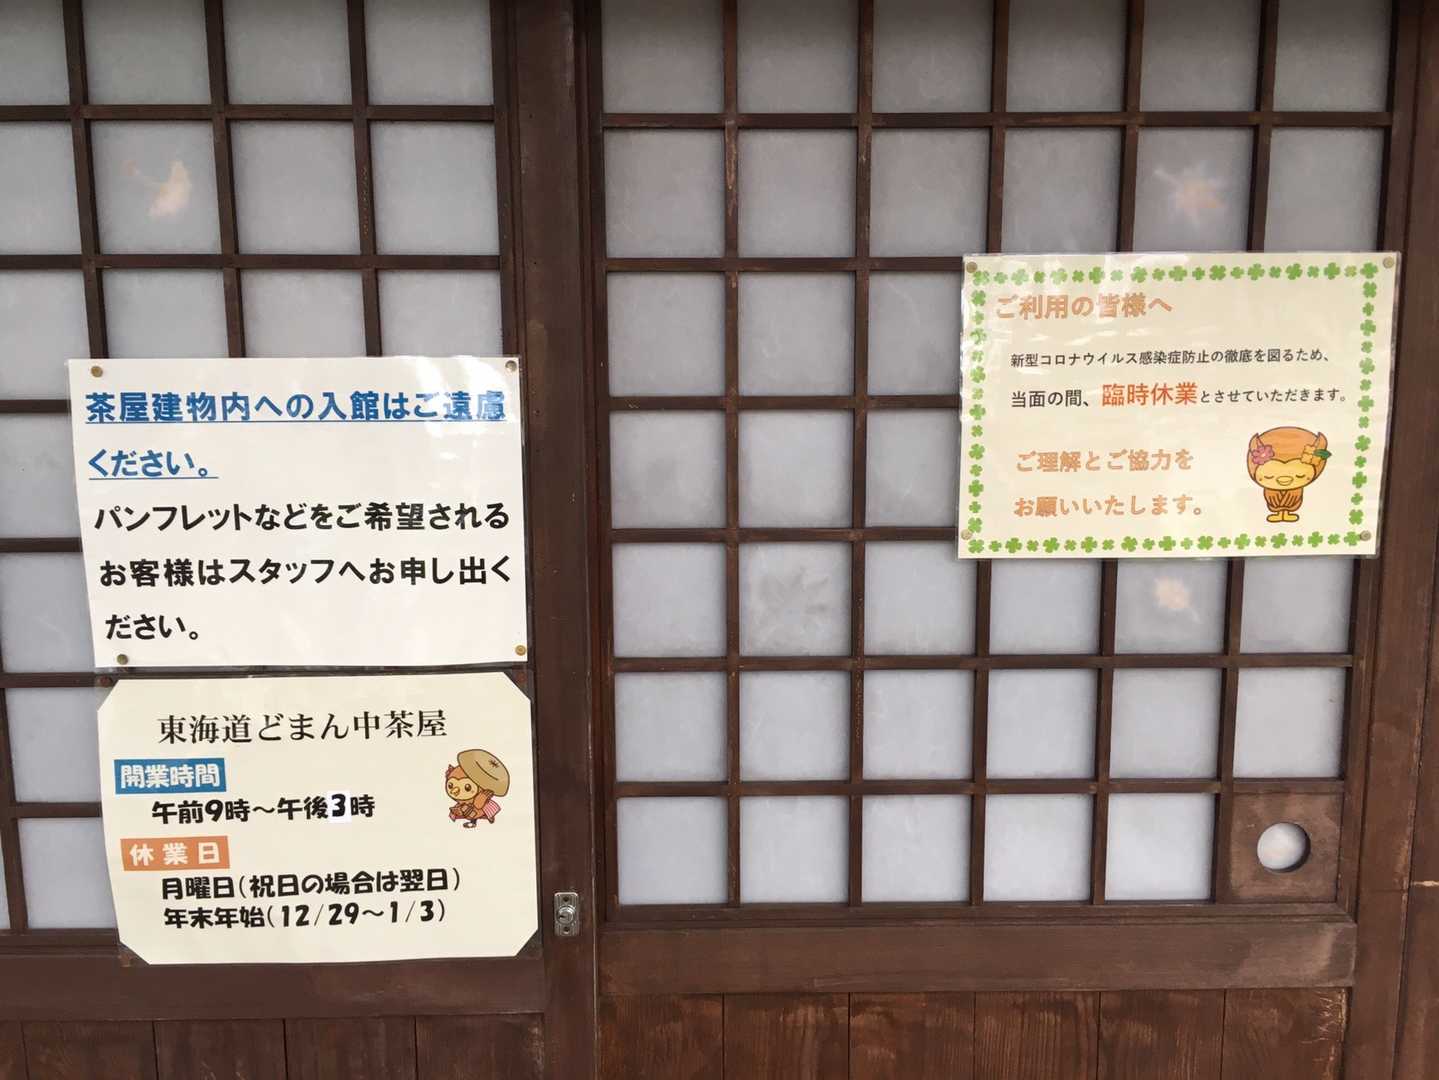 茶屋建物内への入館はご遠慮
ください。
パンフレットなどをご希望される
お客様はスタッフへお申し出く
ださい。
東海道どまん中茶屋
開業時間
午前9時～午後3時
休業日
月曜日(祝日の場合は翌日)
年末年始(12/29～1/3)
ご利用の皆様へ
新型コロナウイルス感染症防止の徹底を図るため、
当面の間、臨時休業とさせていただきます。
ご理解とご協力を
お願いいたします。